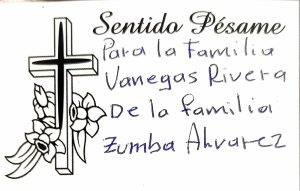 Sentido Pésame
Para la Familia
Vanegas Rivera
De la familia
Zumba Alvarez